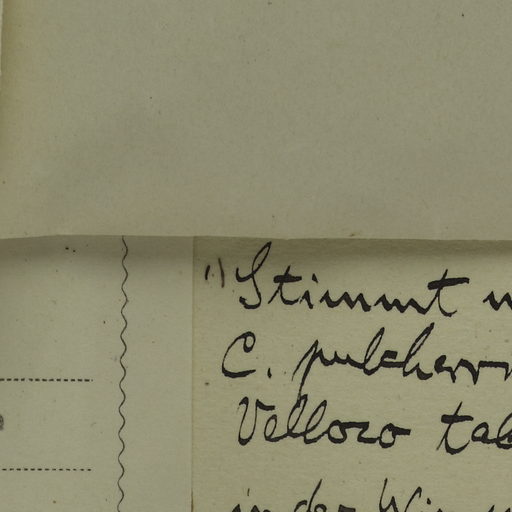 1) Stimmt
C. pulcherr
Vellozo tab
in der